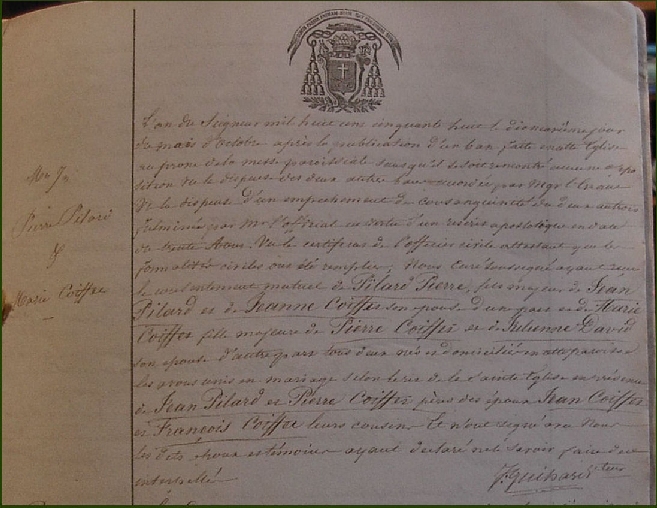 Mr Ja
Pierre Pilard
&
Marie Coiffre
L'an du Seigneur mil huit cens cinquante huit le dixneuvième jour
du mois d'octobre après la publication d'un ban faite en cette Eglise
au prône de la messe paroissiale sans qu'il se soit rencontré aucune oppo
sition Vu la dispense des deux autres bans accordée par Mgr l'Evêque
Vu la dispense d'un empechement de consanguinité du deux au trois
fulminée par Mr l'official en vertu d'un rescrit apostolique en date
du trente Aout. Vu le certificat de l'officier civil attestant que les
formalités civiles ont été remplies, Nous Curé soussigné ayant reçu
le consentement mutuel de Pilard Pierre, fils majeur de Jean
Pilard et de Jeanne Coiffre son épouse d'une part et de Marie
Coiffre fille majeure de Pierre Coiffre et de Julienne David
son épouse d'autre part tous deux nés et domiciliés en cette paroisse
les avons unis en mariage selon le rit de la Sainte Eglise en présence
de Jean Pilard et Pierre Coiffre pères des époux Jean Coiffre
et François Coiffre leurs cousins Et n'ont signé avec Nous
les dits époux et témoins ayant déclaré ne le savoir faire de ce
interpellés
J. Guihard